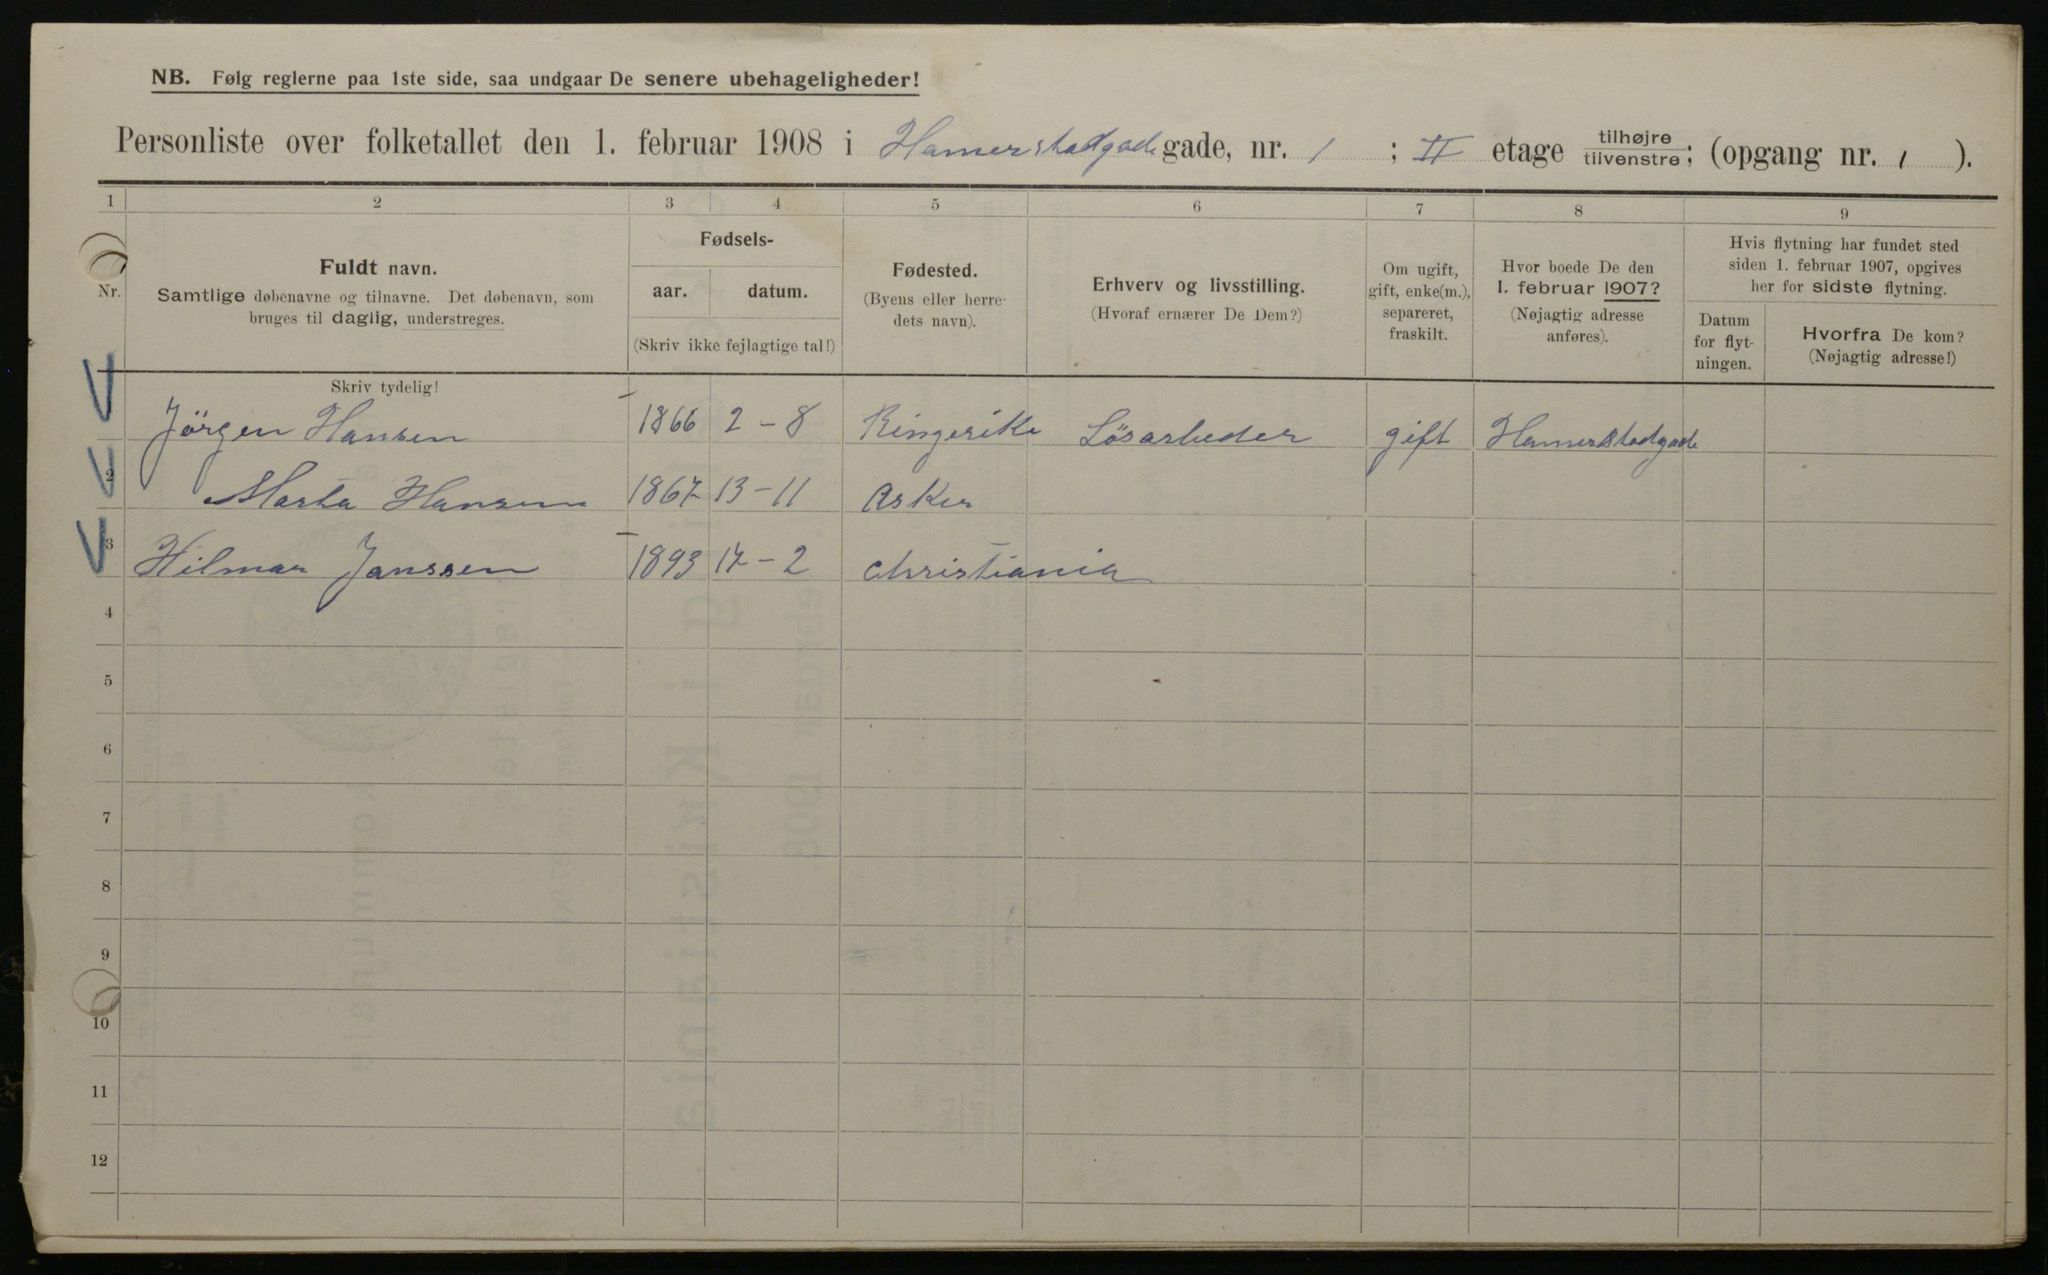 NB. Følg reglerne paa 1ste side, saa undgaar De senere ubehageligheder!
Personliste over folketallet den 1. februar 1908 i Hamerstadgade gade, nr. 1 ; II etage tilhøjre/tilvenstre; (opgang nr. 1 ).
1 2 3 4 5 6 7 8 9
Nr.
Fuldt navn.
Samtlige døbenavne og tilnavne. Det døbenavn, som
bruges til daglig, understreges.
Fødsels-
aar. datum.
(Skriv ikke fejlagtige tal!)
Fødested.
(Byens eller herre-
dets navn).
Erhverv og livsstilling.
(Hvoraf ernærer De Dem?)
Om ugift,
gift, enke(m.),
separeret,
fraskilt.
Hvor boede De den
1. februar 1907?
(Nøjagtig adresse
anføres).
Hvis flytning har fundet sted
siden 1. februar 1907, opgives
her for sidste flytning.
Datum
for flyt-
ningen.
Hvorfra De kom?
(Nøjagtig adresse!)
Skriv tydelig!
Jörgen Hansen 1866 2-8 Ringerike Lösarbeder gift Hamerstadgade
2 Marta Hansen 1867 13-11 Asker
3 Hilmar Janssen 1893 17-2 Christiania
4
5
6
7
8
9
10
11
12